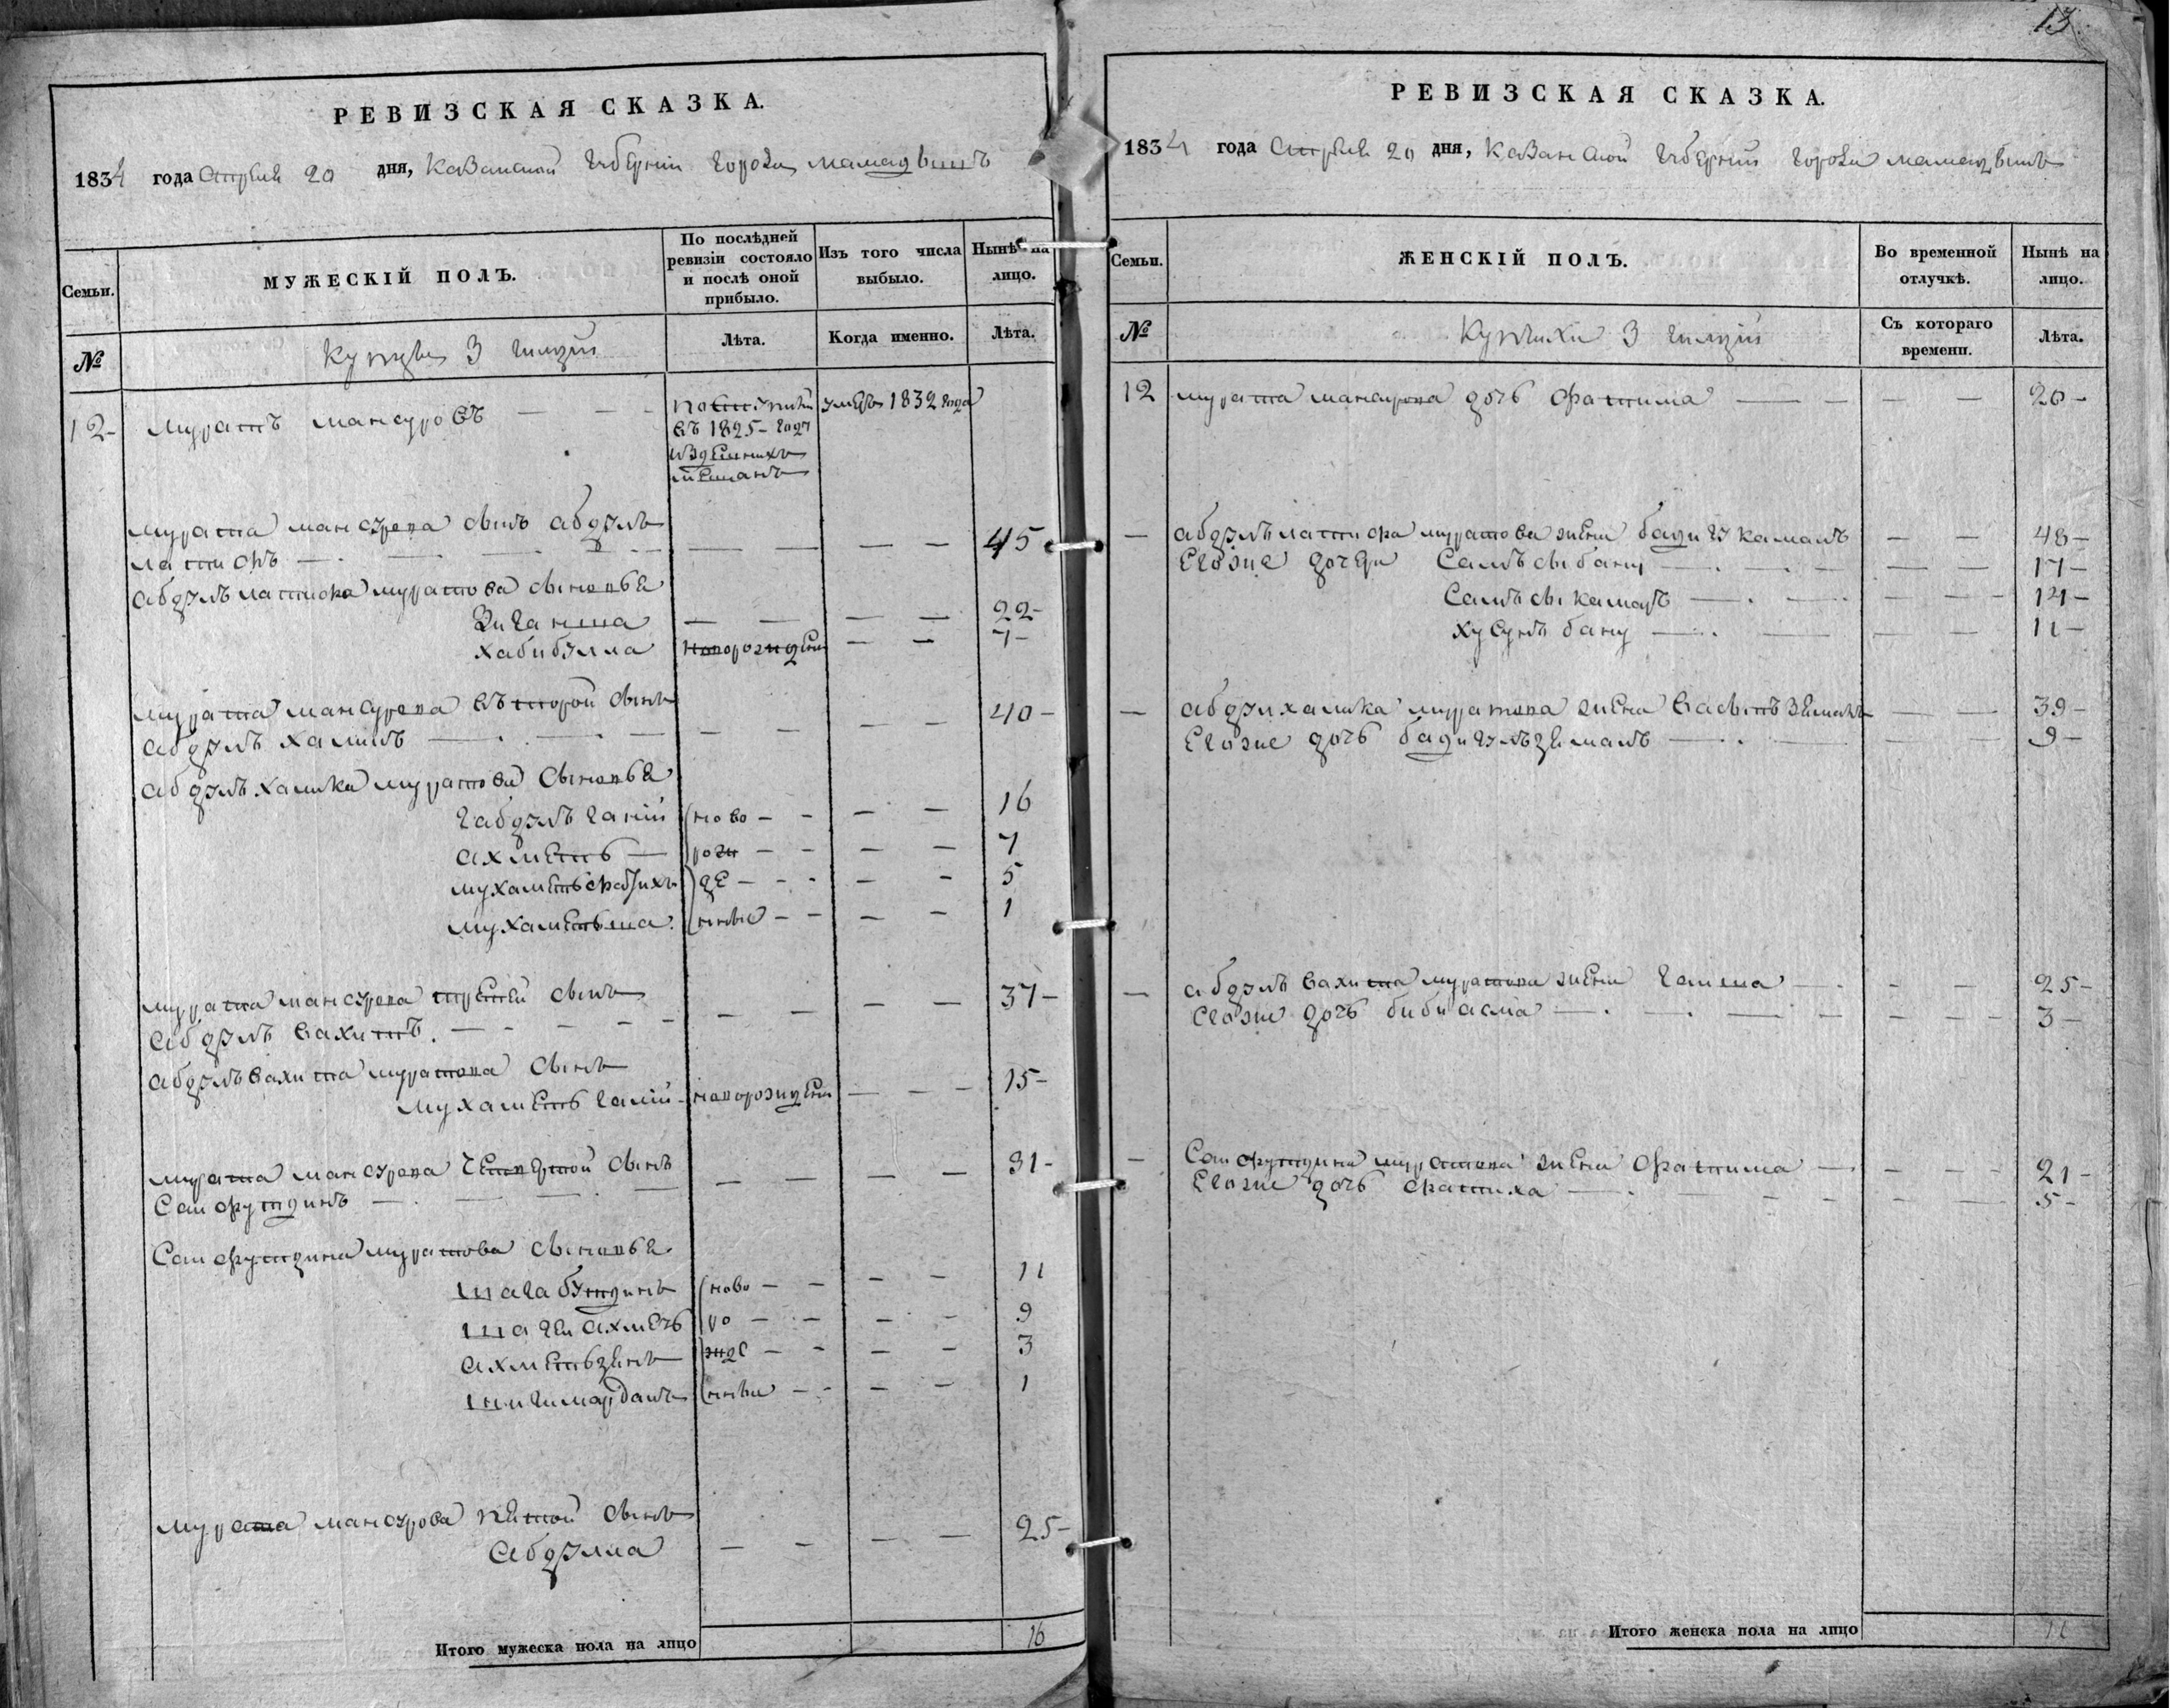 13.
РЕВИЗСКАЯ СКАЗКА.
1834 года Апреля 20 дня, Казанской Губернии города мамадышъ
Семьи.
МУЖЕСКІЙ ПОЛЪ.
По послѣдней ревизіи состояло и послѣ оной прибыло.
Изъ того числа выбыло.
Нынѣ на лицо.
№
Купцы 3 гилдіи
Лѣта.
Когда именно.
Лѣта.
12 муратъ мансуровъ
въ 1825 году
умеръ 1832 года
мурата мансурова сынъ абдулъ
латифъ 45
абдулъ латифа муратова сыновья
Зиганша 22
хабибулла новорожден 7
мурата мансурова въторой сынъ
абдулъ халикъ 40
абдулъ халика муратова сыновья
габдулъ ганій ново 16
ахметь рож 7
мухаметь фабзихъ де 5
мухаметьша нные 1
мурата мансурова третей сынъ
абдулъ вахитъ 37
абдулъ вахита муратова сынъ
мухаметь галій новорожден 15
мурата мансурова четвертой сынъ
Сайфутдинъ 31
Сайфутдина муратова сыновья
шагабутдинъ ново 11
шагеи ахметь ро 9
ахметьзенъ жде 3
шигимарданъ нные 1
мурата мансурова пятой сынъ
абдулла 25
Итого мужеска пола на лицо 16
РЕВИЗСКАЯ СКАЗКА.
1834 года Апреля 20 дня, Казанской Губернии города мамадышъ
Семьи.
ЖЕНСКІЙ ПОЛЪ.
Во временной отлучкѣ.
Нынѣ на лицо.
№
Купчихи 3 гилдіи
Съ котораго времени.
Лѣта.
12 мурата мансурова дочь фатима 20
абдулъ латифа муратова жена бадигу камалъ 48
Егоже дочери Салъсыбану 17
Салъсы камалъ 14
хусунъ бану 11
абдулхалика муратова жена васыпъ земалъ 39
Егоже дочь бадигулъземалъ 9
абдулъ вахита муратова жена гайша 25
Егоже дочь биби асма 3
Сайфутдина муратова жена фатима 21
Егоже дочь фатиха 5
Итого женска пола на лицо 11